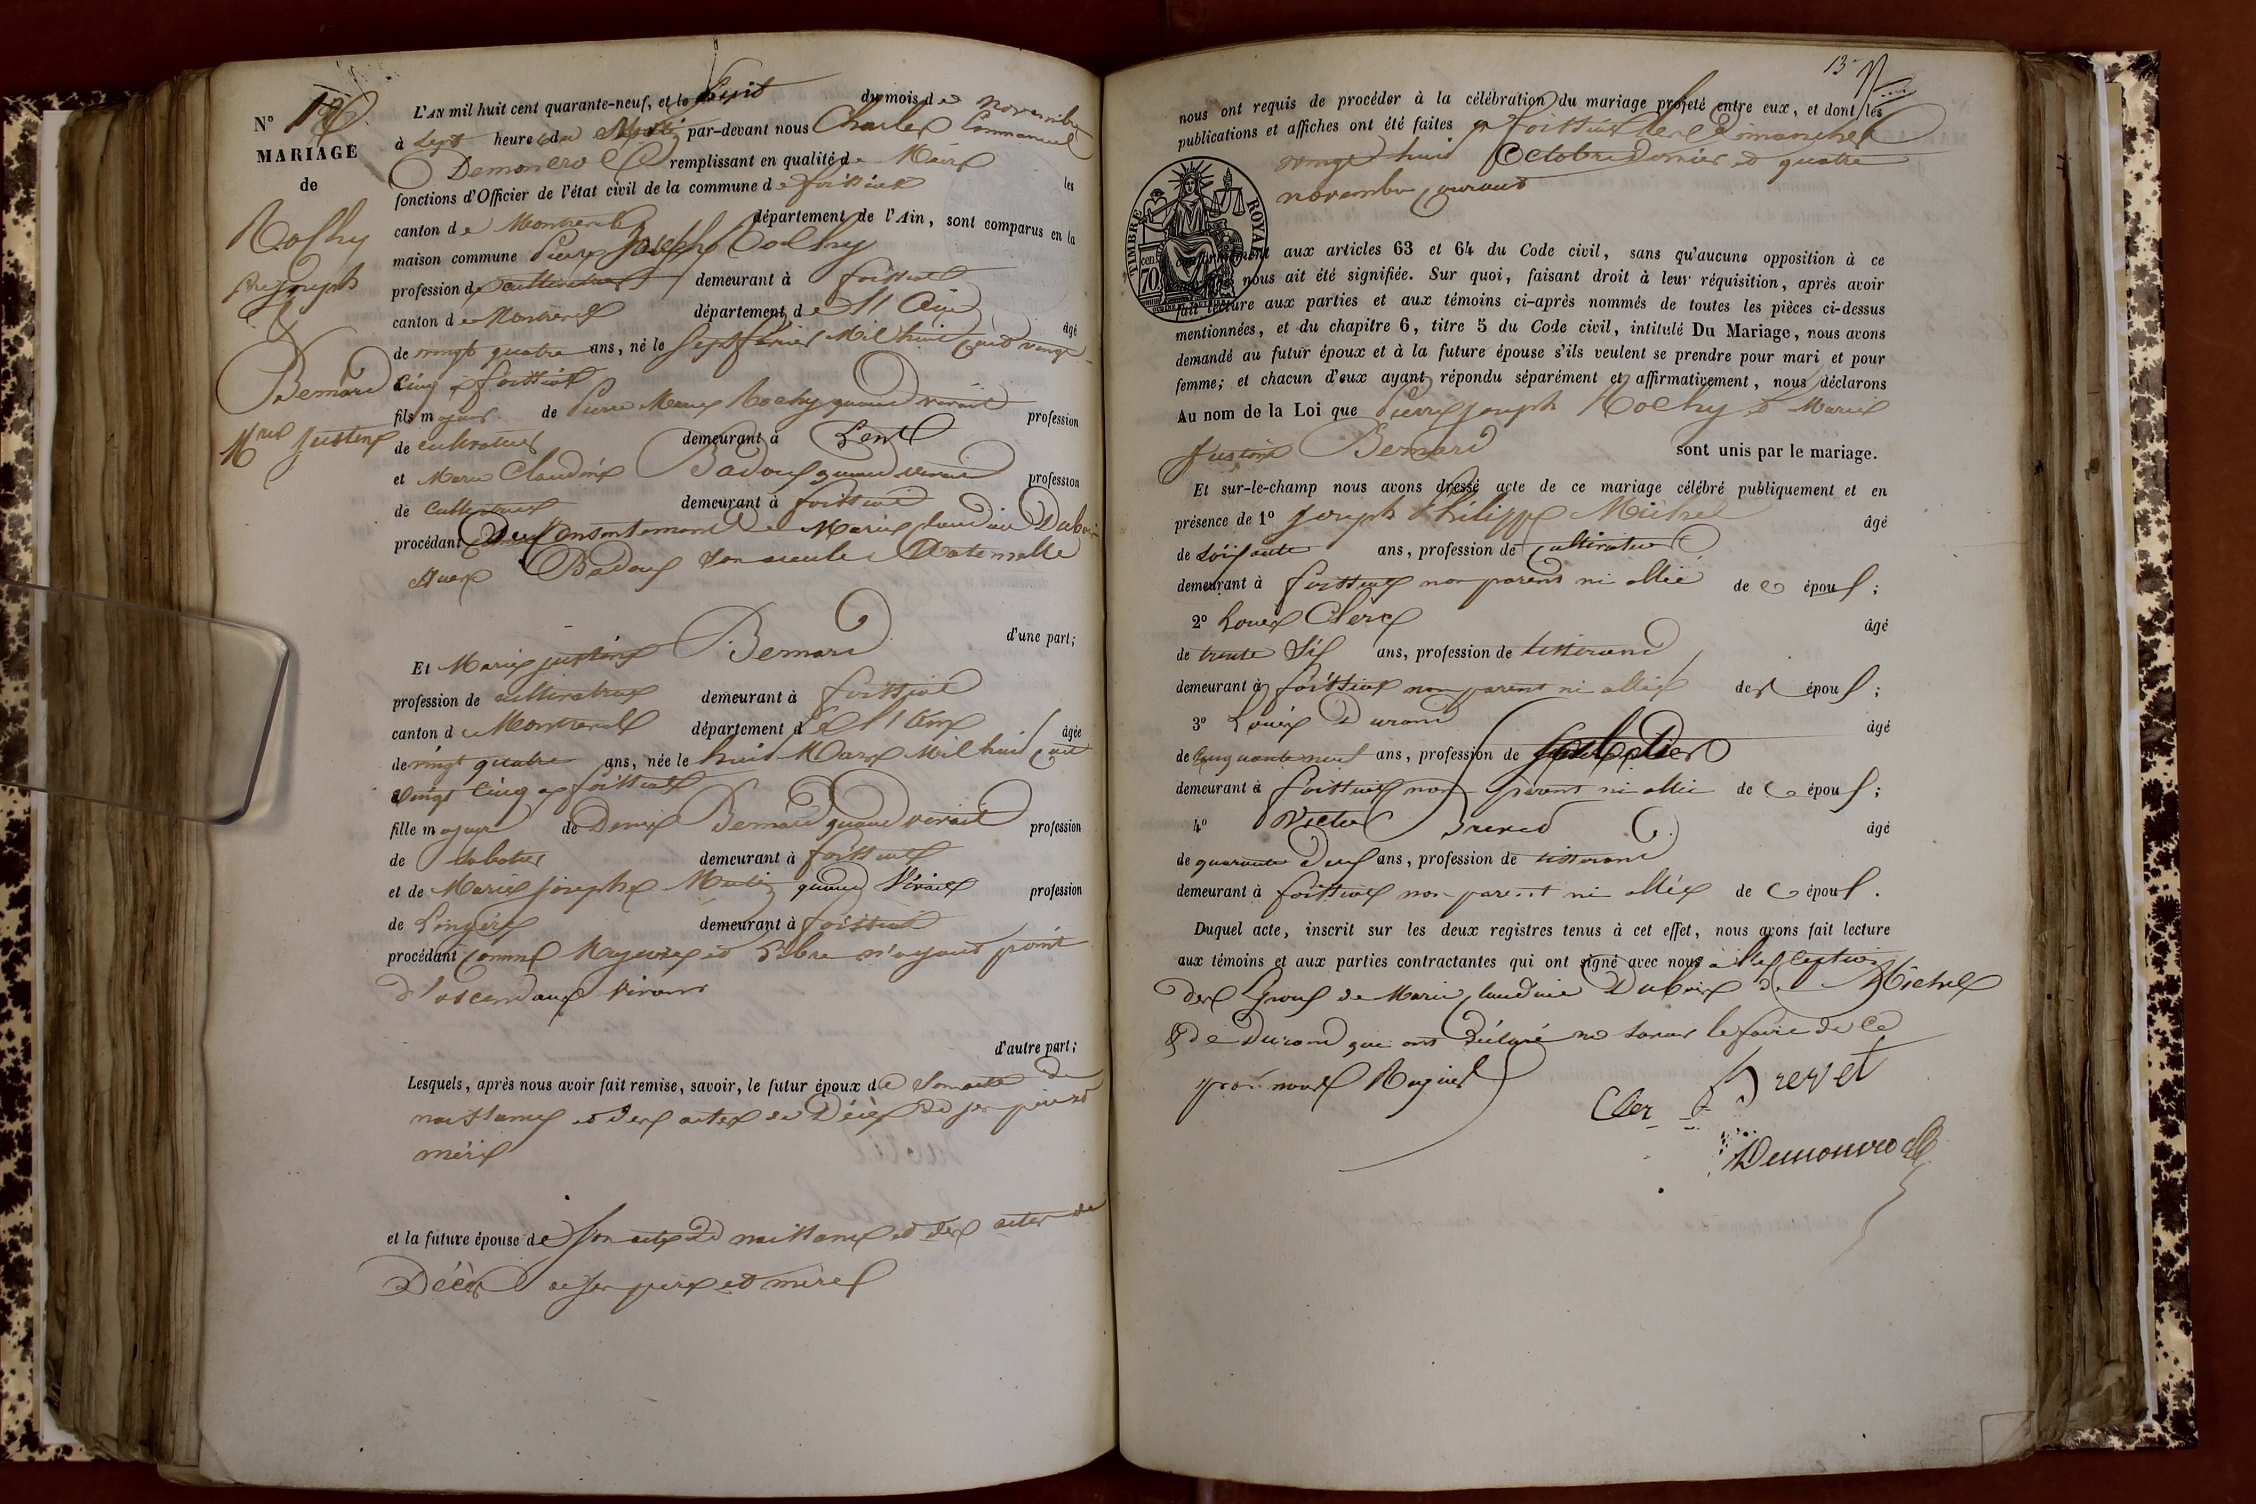 N°
MARIAGE
de
Rochy
Pre Joseph
&
Bernard
Mrie Justine
L'AN mil huit cent quarante-neuf, et le huit du mois de novembre
à sept heures du Matin par-devant nous Charles Emmanuel
remplissant en qualité de Maire les
fonctions d'Officier de l'état civil de la commune de foissiat
canton de Montrevel département de l'Ain, sont comparus en la
maison commune Pierre Joseph Rochy
profession de cultivateur demeurant à foissiat
canton de Montrevel département de l'Ain âgé
de vingt quatre ans, né le sept février Mil huit cent vingt
cinq à foissiat
fils majeur de Pierre Marie Rochy quand vivait profession
de cultivateur demeurant à
et Marie Claudine Badoux quand vivait profession
de cultivatrice demeurant à foissiat
procédant du Consentement de Marie Claudine Dubois
Badoux son aieule Maternelle
d'une part;
Et Marie justine Bernard
profession de cultivatrice demeurant à foissiat
canton de Montrevel département de l'Ain âgée
de vingt quatre ans, née le huit Mars Mil huit cent
vingt cinq à foissiat
fille majeure de Denis Bernard quand vivait profession
de sabotier demeurant à foissiat
et de Marie Josephe quand vivait profession
de Lingère demeurant à foissiat
procédant comme Majeure et Libre n'ayant point
d'ascendants vivans
d'autre part;
Lesquels, après nous avoir fait remise, savoir, le futur époux de son acte de
naissance et des actes de Décès de ses père et
mère
et la future épouse de son acte de naissance et des actes de
Décès de ses père et mère
13
nous ont requis de procéder à la célébration du mariage projeté entre eux, et dont les
publications et affiches ont été faites à foissiat les Dimanches
vingt huit Octobre dernier et quatre
novembre courant
TIMBRE ROYAL
70 cent
conformément aux articles 63 et 64 du Code civil, sans qu'aucune opposition à ce
mariage nous ait été signifiée. Sur quoi, faisant droit à leur réquisition, après avoir
fait lecture aux parties et aux témoins ci-après nommés de toutes les pièces ci-dessus
mentionnées, et du chapitre 6, titre 5 du Code civil, intitulé Du Mariage, nous avons
demandé au futur époux et à la future épouse s'ils veulent se prendre pour mari et pour
femme; et chacun d'eux ayant répondu séparément et affirmativement, nous déclarons
Au nom de la Loi que Pierre Joseph Rochy & Marie
Justine Bernard sont unis par le mariage.
Et sur-le-champ nous avons dressé acte de ce mariage célébré publiquement et en
présence de 1° Joseph Philippe Michel âgé
de soixante ans, profession de cultivateur
demeurant à foissiat non parent ni allié de époux;
2° Louis Clerc âgé
de trente six ans, profession de tisserand
demeurant à foissiat non parent ni allié des époux;
3° Louis Durand âgé
de cinquante neuf ans, profession de
demeurant à foissiat non parent ni allié de époux;
4° Victor Brevet âgé
de quarante deux ans, profession de tisserand
demeurant à foissiat non parent ni allié de époux.
Duquel acte, inscrit sur les deux registres tenus à cet effet, nous avons fait lecture
aux témoins et aux parties contractantes qui ont signé avec nous à l'exception
des Epoux de Marie Claudine Dubois de Michel
& de Durand qui ont déclaré ne savoir le faire de ce
par nous Requis
Brevet
Clerc